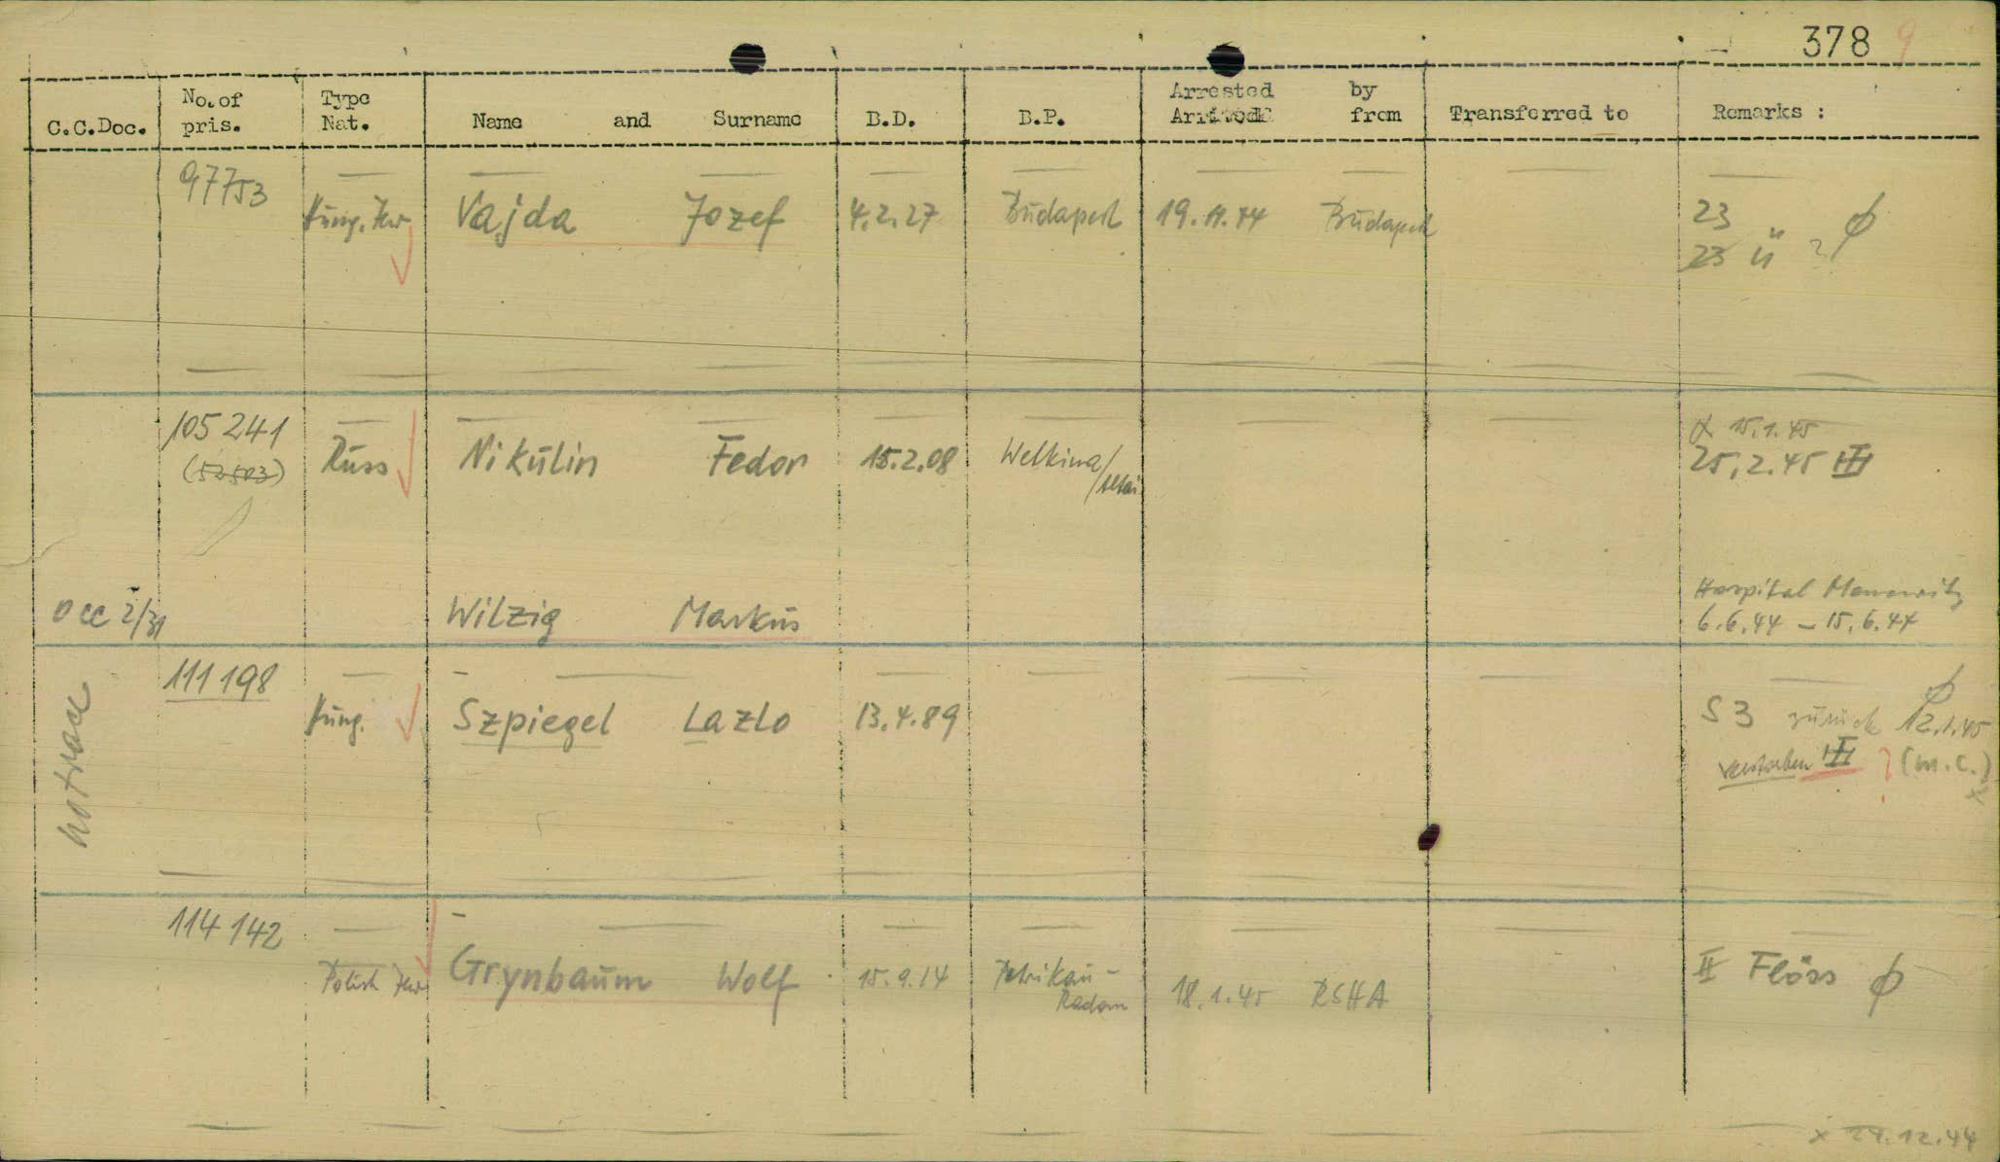 378 9
C.C.Doc. No. of pris. Type Nat. Name and Surname B.D. B.P. Arrested by Arrived from Transferred to Remarks :
97753 Hung. Jew Vajda Jozef 4.2.27 Budapest 19.11.44 Budapest 23
23 ü ?
105 241 Russ Nikulin Fedor 15.2.08 Welkina/Altai 15.1.45
(52503) 25.2.45
Hospital Monowitz
OCC 2/31 Wilzig Markus 6.6.44 – 15.6.44
111 198
no trace Hung. Szpiegel Lazlo 13.4.89 S3 zurück 12.1.45
verstorben ? (m.c.)
x
114 142
Polish Jew Grynbaum Wolf 15.9.14 Petrikau-Radom 18.1.45 RSHA II Flöss
x 29.12.44